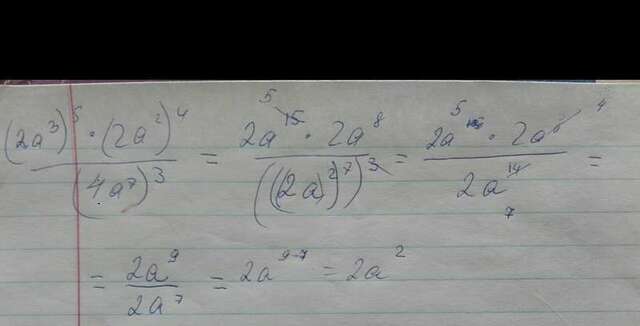 (2a^3)^5 · (2a^2)^4 / (4a^7)^3 = 2a^15 5 · 2a^8 / (((2a)^2)^7)^3 = 2a^15 5 · 2a^8 4 / 2a^14 7 =
= 2a^9 / 2a^7 = 2a^9-7 = 2a^2